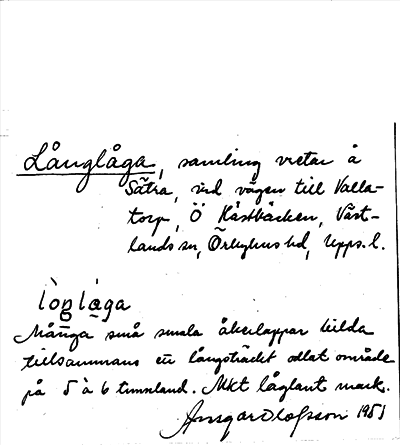 Långlåga, samling vretar å
Sätra, vid vägen till Valla-
torp, Ö Hästbäcken, Väst-
lands sn, Örbyhus hd, Upps. l.
lòŋlåga
Många små smala åkerlappar bilda
tillsammans ett långsträckt odlat område
på 5 à 6 tunnland. Mkt låglänt mark.
Ansgar Olofsson 1951